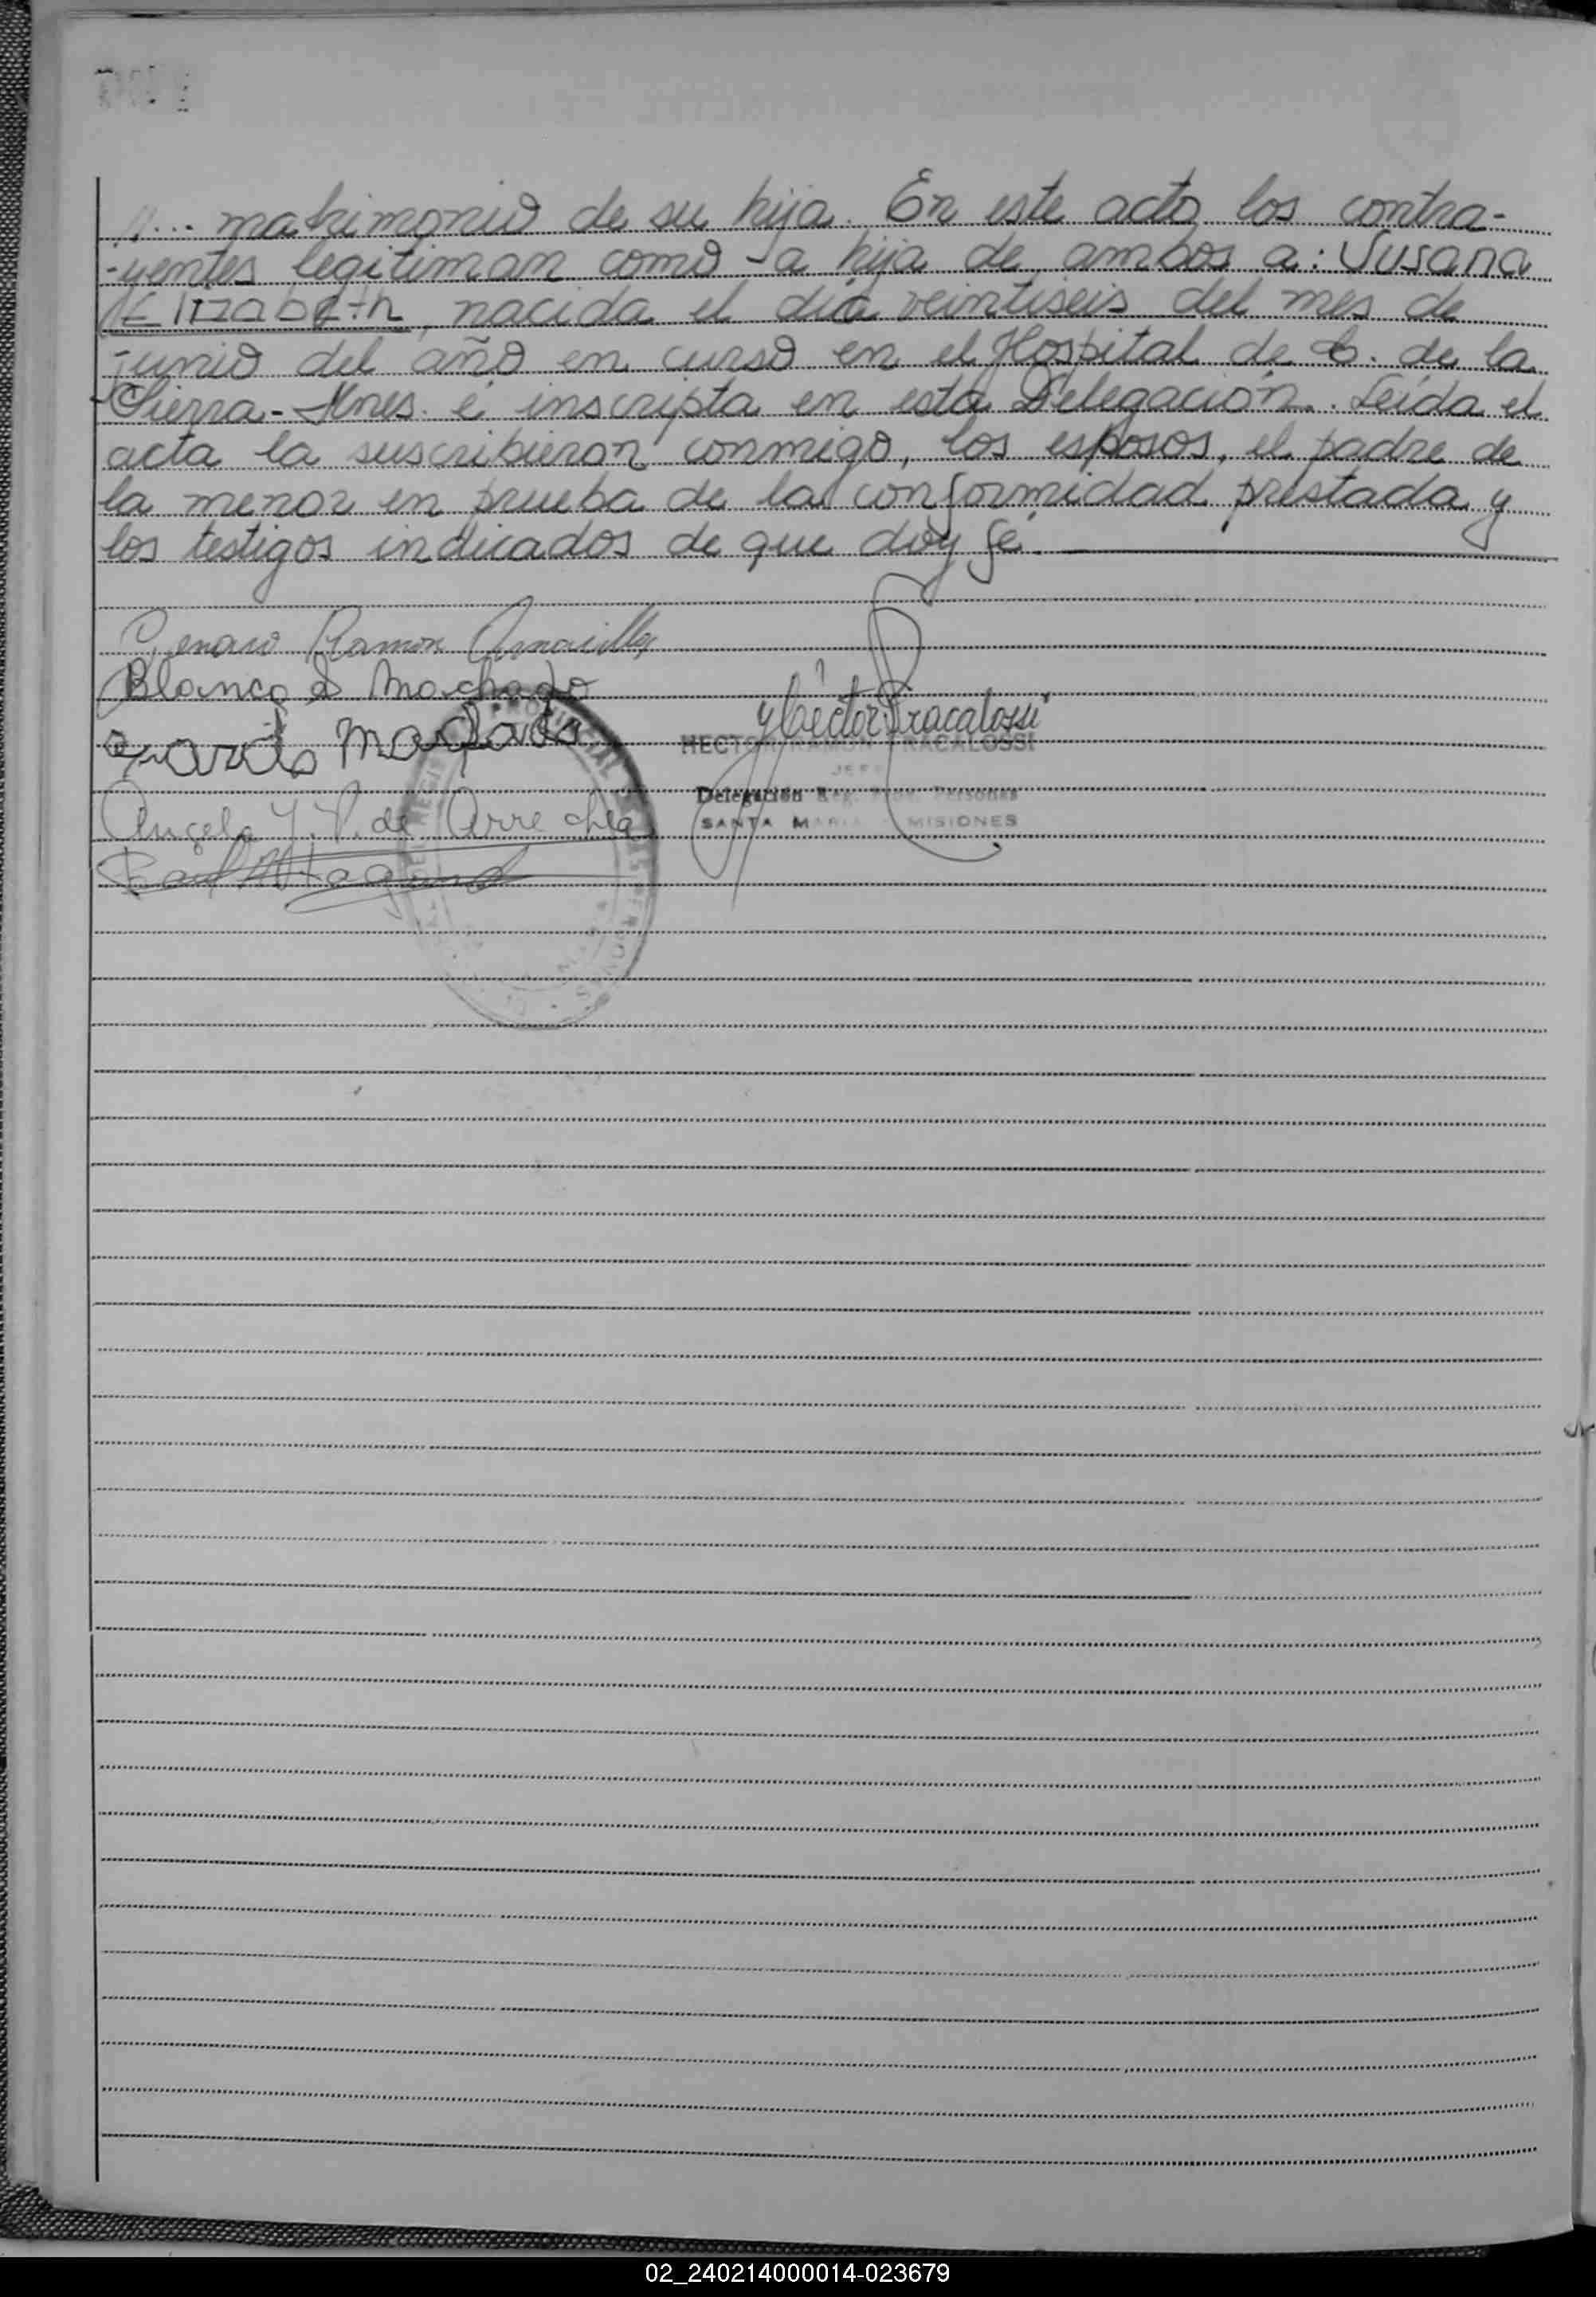 //... matrimonio de su hija. En este acto los contra-
-yentes legitiman como a hija de ambos a: Susana
Elizabeth, nacida el día veintiseis del mes de
junio del año en curso en el Hospital de C. de la
Sierra-Mnes. é inscripta en esta Delegación. Leída el
acta la suscribieron conmigo, los esposos, el padre de
la menor en prueba de la conformidad prestada y
los testigos indicados de que doy fé.
Genaro Ramon
Blanca A Machado
Machado
Hector Bracalossi
HECTOR RAMON BRACALOSSI
JEFE
Delegación Reg. Prov. Personas
SANTA MARIA MISIONES
Angela Y. V. de Arrechea
02_240214000014-023679